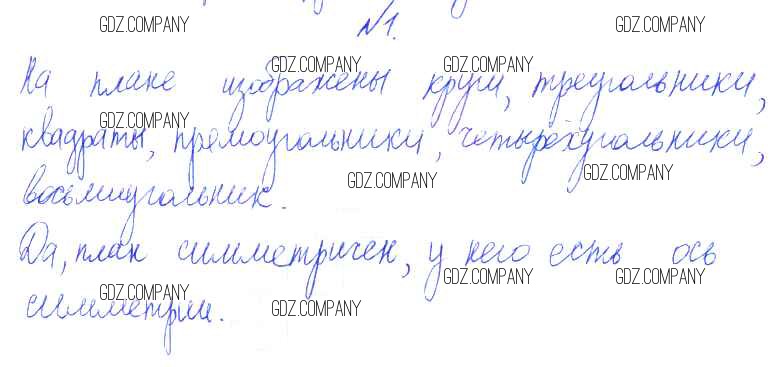 GDZ.COMPANY
№1.
GDZ.COMPANY GDZ.COMPANY
На плане изображены круги, треугольники,
GDZ.COMPANY
квадраты, прямоугольники, четырёхугольники,
GDZ.COMPANY GDZ.COMPANY
восьмиугольник.
Да, план симметричен, у него есть ось
GDZ.COMPANY GDZ.COMPANY GDZ.COMPANY
симметрии.
GDZ.COMPANY